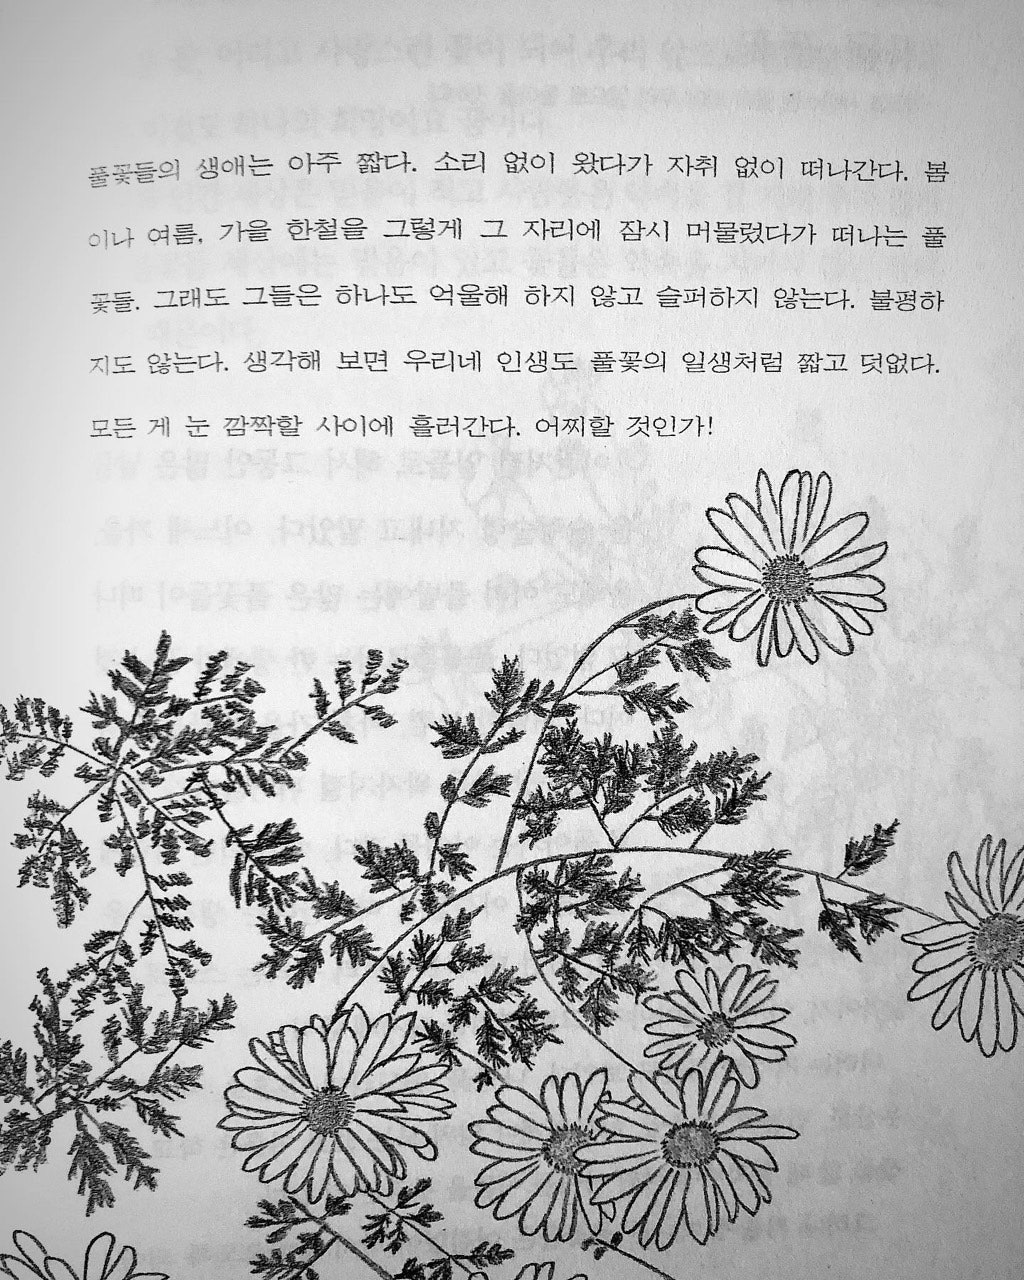 풀꽃들의 생애는 아주 짧다. 소리 없이 왔다가 자취 없이 떠나간다. 봄
이나 여름, 가을 한철을 그렇게 그 자리에 잠시 머물렀다가 떠나는 풀
꽃들. 그래도 그들은 하나도 억울해 하지 않고 슬퍼하지 않는다. 불평하
지도 않는다. 생각해 보면 우리네 인생도 풀꽃의 일생처럼 짧고 덧없다.
모든 게 눈 깜짝할 사이에 흘러간다. 어찌할 것인가!